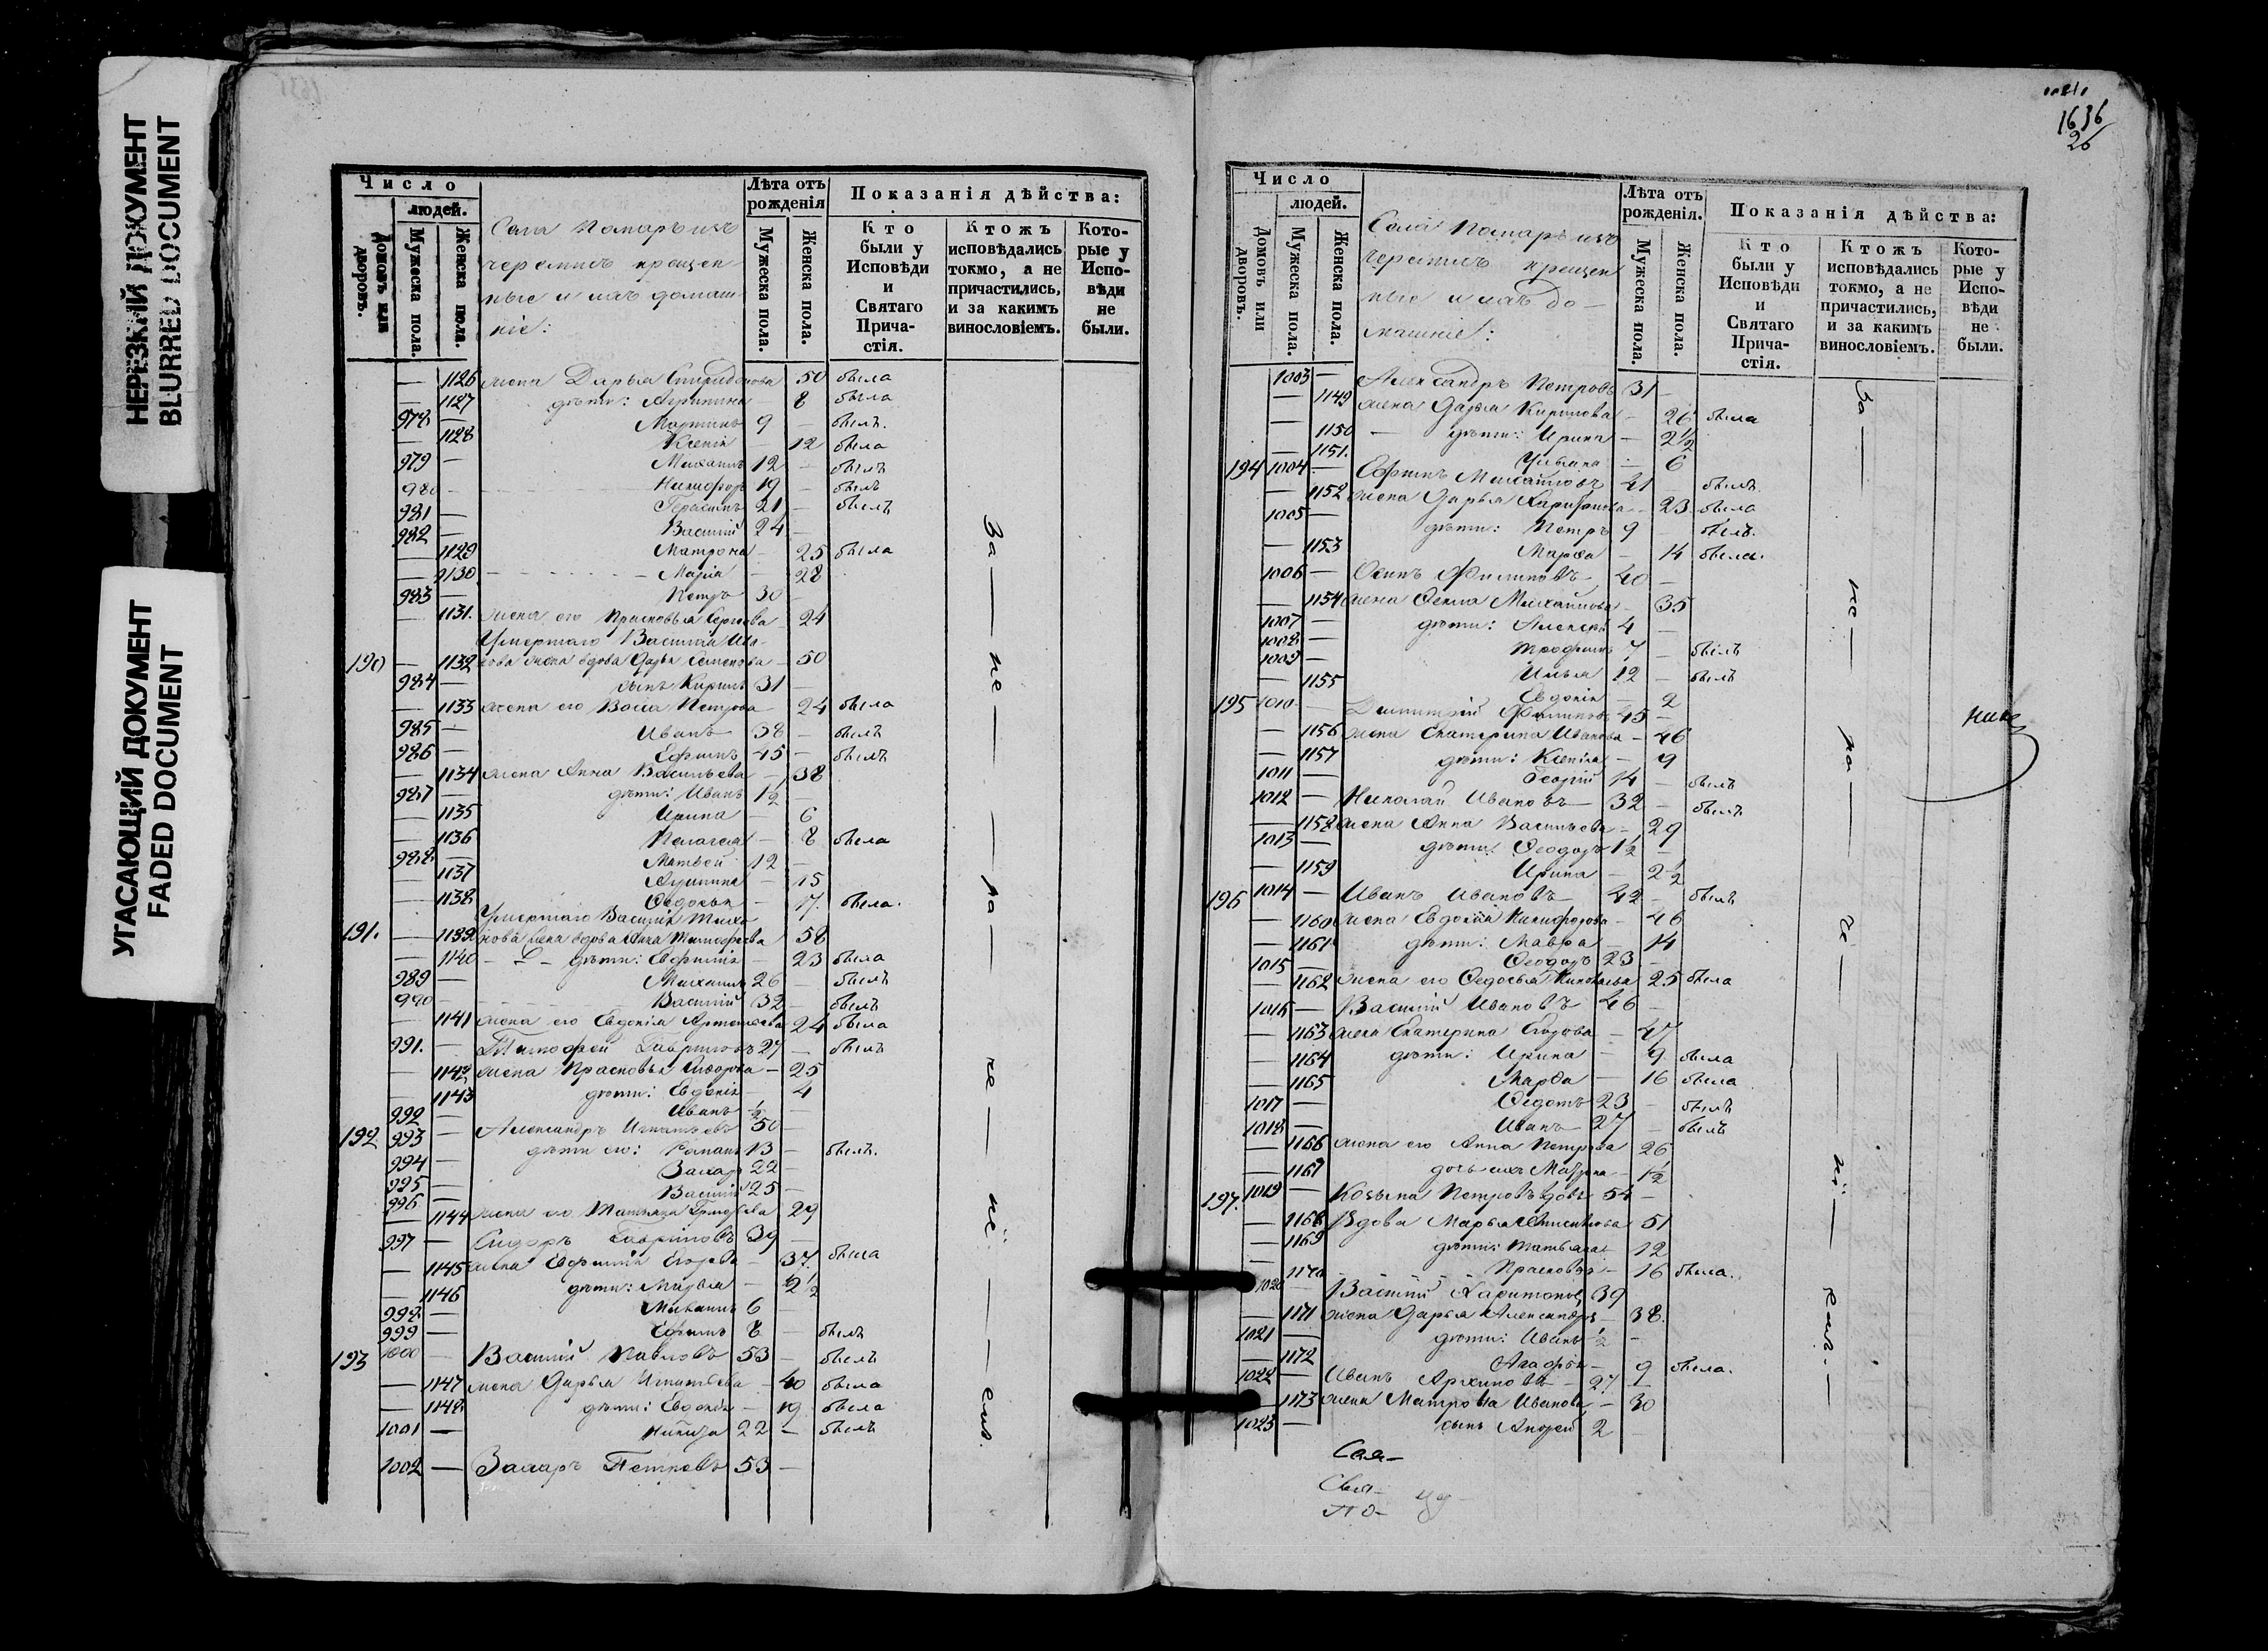 НЕРЕЗКИЙ ДОКУМЕНТ
BLURRED DOCUMENT
УГАСАЮЩИЙ ДОКУМЕНТ
FADED DOCUMENT
Число
людей.
Домовъ или дворовъ.
Мужеска пола.
Женска пола.
Села Помаръ изъ
черемисъ крещен
ные и ихъ домаш
ніе:
Лѣта отъ рожденія
Мужеска пола.
Женска пола.
Показанія дѣйства:
Кто были у Исповѣди и Святаго Прича-стія.
Ктожъ исповѣдались токмо, а не причастились, и за какимъ винословіемъ.
Кото-рые у Испо-вѣди не были.
— 1126 жена Дарья Спиридонова 50 была
— 1127 дѣти: Агрипина — 8 была
978 — Мартинъ 9 — былъ.
— 1128 Ксенія — 12 была
979 — Михаилъ 12 — былъ
980 — Никифоръ 19 — былъ
981 — Герасимъ 21 — былъ
982 — Василій 24 —
— 1129 Матрона — 25 была
— 1130 Марія — 28
983 — Петръ 30 —
— 1131. жена его Прасковья Сергеева — 24
Умершаго Василія Ива-
190 — 1132 нова жена вдова Дарья Семенова — 50
984 — сынъ Кирилъ 31 —
— 1133 жена его Васса Петрова — 24 была
985 — Иванъ 38 — былъ
986 — Ефимъ 45 — былъ
— 1134 жена Анна Васильева — 38
987 — дѣти: Иванъ 1/2 —
— 1135 Ирина — 6
— 1136 Пелагея — 8 была
988 — Матвей 12 —
— 1137 Акулина — 15
— 1138 Федосья — 17. была.
Умершаго Василія
191. — 1139 нова жена вдова Анна Тимофеева 58
— 1140 дѣти: Евфимія — 23 была
989 — Михаилъ 26 — былъ
990 — Василій 32 — былъ
— 1141 жена его Евдокія 24 была
991. — Тимофей Гавриловъ 27 — былъ
— 1142 жена Прасковья — 25
— 1143 дѣти: Евдокія — 4
992 — Иванъ 1/2 —
192 993 — Александръ Игнатьевъ 50 —
994 — дѣти его: Романъ 13 — былъ.
995 — Захаръ 22 —
996 — Василій 25 —
— 1144 жена его Татьяна Григорьева 29
997 — Сидоръ Гавриловъ 39 —
— 1145 жена Евфимія Егорова — 37. была
— 1146 дѣти: Марья — 2 1/2
998 — Михаилъ 6 —
999 — Ефимъ 8 — былъ
193 1000 — Василій Павловъ 53 — былъ
— 1147 жена Дарья Игнатьева — 40 была
— 1148 дѣти: Евдокія — 19 была
1001 — Никита 22 — былъ
1002 — Захаръ Петровъ 53 —
За — не —
1636
26
Число
людей.
Домовъ или дворовъ.
Мужеска пола.
Женска пола.
Села Помаръ изъ
черемисъ крещен
ные и ихъ до-
машніе:
Лѣта отъ рожденія.
Мужеска пола.
Женска пола.
Показанія дѣйства:
Кто были у Исповѣди и Святаго Прича-стія.
Ктожъ исповѣдались токмо, а не причастились, и за какимъ винословіемъ.
Кото-рые у Испо-вѣди не были.
1003 — Александръ Петровъ 31 —
— 1149 жена Дарья Кирилова — 26 была
— 1150 дѣти: Ирина — 2 1/2
— 1151. Ульяна — 6
194 1004 — Ефимъ Михайловъ 41 — былъ
— 1152 жена Дарья — 23 была
1005 — дѣти: Петръ 9 — былъ.
— 1153 Марфа — 14 была.
1006 — Осипъ Филиповъ 40 —
— 1154 жена Фекла Михайлова — 35
1007 — дѣти: Алексей 4 —
1008 — Трофимъ 7 — былъ
1009 — Илья 12 — былъ
— 1155 Евдокія — 2
195 1010 — Дмитрій Филиповъ 45 —
— 1156 жена Екатерина Иванова — 46
— 1157 дѣти: Ксенія — 9
1011 — Георгій 14 — былъ
1012 — Николай Ивановъ 32 — былъ
— 1158 жена Анна Васильева — 29
1013 — дѣти: Феодоръ 1 1/2 —
— 1159 Ирина — 2 1/2
196 1014 — Иванъ Ивановъ 42 — былъ
— 1160 жена Евдокія Никифорова — 46
— 1161 дѣти: Мавра — 14
1015 — Феодоръ 23 —
— 1162 жена его Федосья Николаева 25 была
1016 — Василій Ивановъ 46 —
— 1163 жена Екатерина Егорова — 47
— 1164 дѣти: Ирина — 9 была
— 1165 Марфа — 16 была
1017 — Федотъ 23 — былъ
1018 — Иванъ 27 — былъ
— 1166 жена его Анна Петрова 26
— 1167 дочь ихъ Матрона — 1/2
197. 1019 — Козьма Петровъ вдовъ 54 —
— 1168 Вдова Марья 51
— 1169 дѣти: Татьяна — 12
— 1170 Прасковья — 16 была.
1020 — Василій Харитоновъ 39
— 1171 жена Дарья Александрова — 38.
1021 — дѣти: Иванъ 1/2 —
— 1172 Агафья — 9 была.
1022 — Иванъ Архиповъ 27 —
— 1173 жена Матрона Иванова — 30
1023 — сынъ Андрей 2 —
За — не —
Свя-